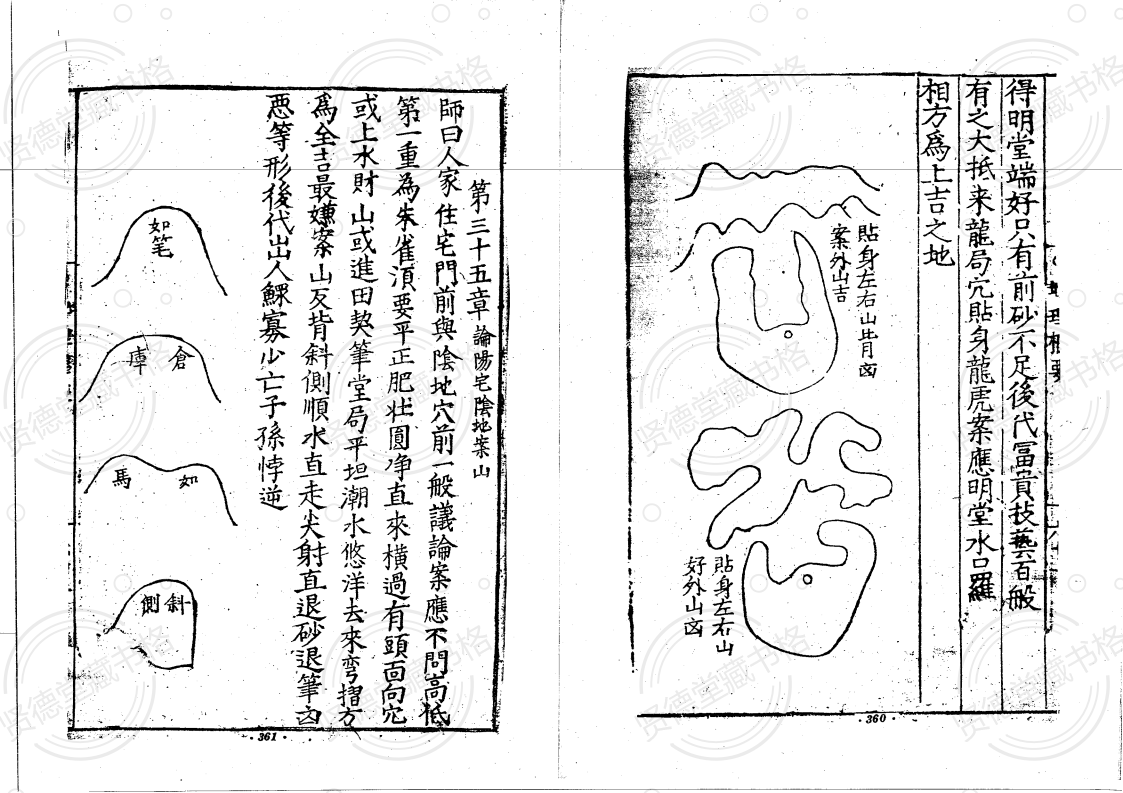 得明堂端好只有前砂不足後代冨貴技藝百般
有之大抵来龍局穴貼身龍虎案應明堂水口羅
相方爲上吉之地
貼身左右山背凶
案外山吉
貼身左右山
好外山凶
360
第三十五章 論陽宅陰地案山
師曰人家住宅門前與陰地穴前一般議論案應不問高低
第一重為朱雀湏要平正肥壯圓净直來橫過有頭面向穴
或上水財山或進田契筆堂局平坦潮水悠洋去來弯摺方
爲全吉最嫌案山反背斜側順水直走尖射直退砂退筆凶
惡等形後代出人鰥寡少亡子孫悖逆
如笔
倉庫
如馬
斜側
361
贤德堂藏书格